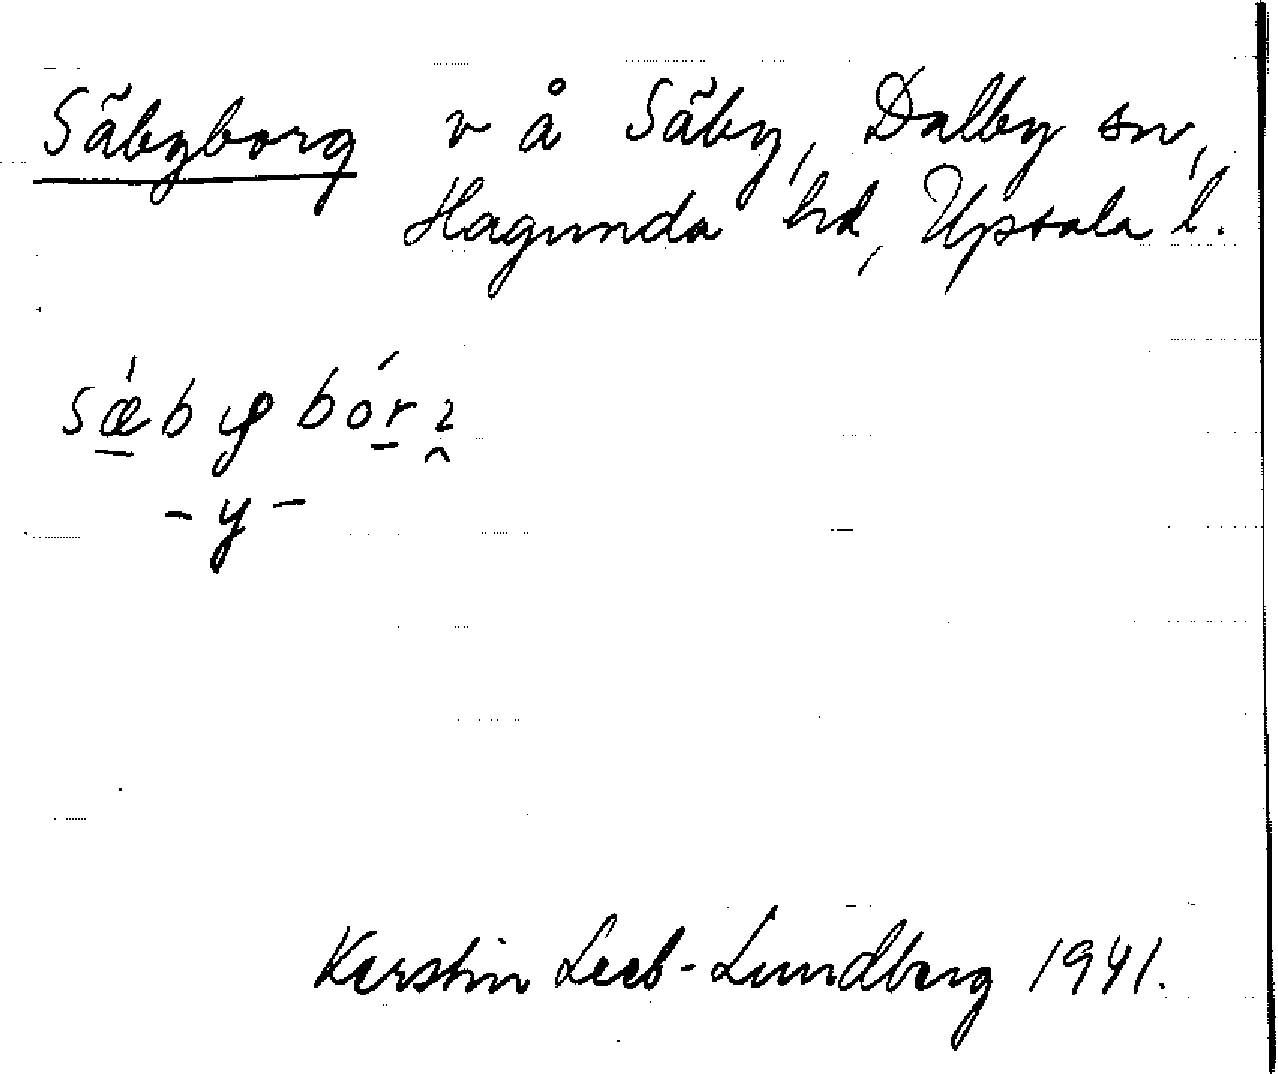 Säbyborg v å Säby, Dalby sn,
Hagunda hd, Upsala l.
-y-
Kerstin Leeb-Lundberg 1941.